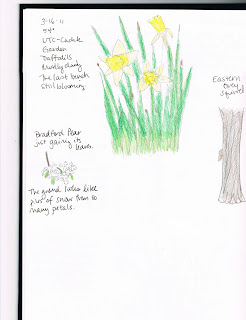 3-16-11
54°
UTC-Cadek
Garden
Daffodils
Mostly cloudy
The last bunch
still blooming
Bradford Pear
just gaining its
leaves.
The ground looks like
of snow from so
many petals.
Eastern
Grey
Squirrel